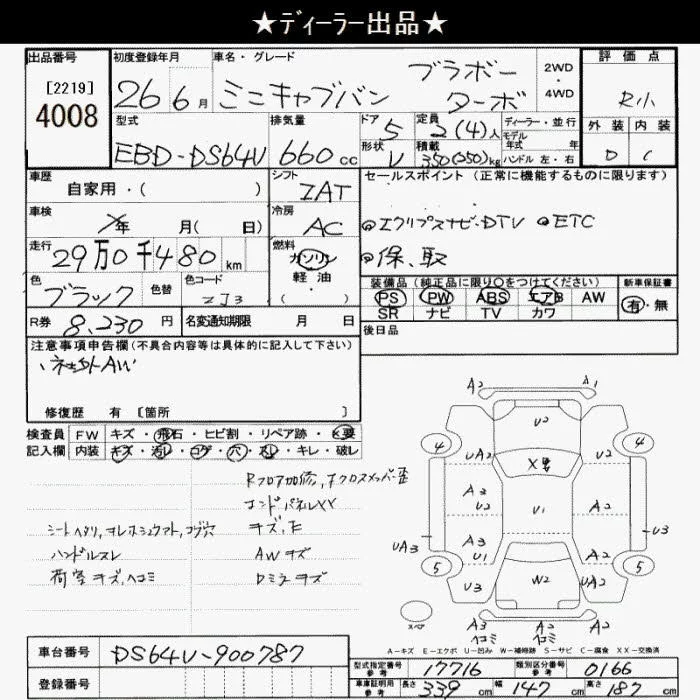 ★ディーラー出品★
出品番号
[2219]
4008
初度登録年月
26年6月
車名・グレード
ミニキャブバン ブラボー
ターボ
2WD・4WD
評価点
R小
外装 内装
D C
型式
EBD-DS64V
排気量
660cc
ドア 5
形状 V
定員 2(4)人
積載 350(250)kg
ディーラー・並行
モデル年式 年
ハンドル 左・右
車歴
自家用・( )
シフト
IAT
セールスポイント (正常に機能するものに限ります)
車検
年 月( 日)
冷房
AC
◎エクリプスナビ・DTV ◎ETC
◎保、取
走行
29万0千480km
燃料
ガソリン
軽油
( )
色
ブラック
色替
色コード
装備品 (純正品に限り○をつけてください)
PS PW ABS エアB AW
SR ナビ TV カワ
新車保証書
有・無
R券 8,230円
名変通知期限 月 日
後日品
注意事項申告欄(不具合内容等は具体的に記入して下さい)
・社外AW
修復歴 有 [箇所 ]
検査員
記入欄
FW キズ・飛石・ヒビ割・リペア跡・X要
内装 キズ・汚レ・コゲ・穴・スレ・キレ・破レ
Rフロア加修,Fクロスメンバー歪
エンドパネルXX
キズ,E
AWキズ
Dミラーキズ
ハンドルスレ
荷室キズ,ヘコミ
A2 A1
U2
4 4
UA2 A2
X要
A3
U2
U1
A2
UA3
A3
U1
A2
U3
5 5
U3 W2 UA2
スペア
A3 A2 A2
ヘコミ ヘコミ
A-キズ E-エクボ U-凹み W-補修跡 S-サビ C-腐食 XX-交換済
車台番号
DS64V-900787
登録番号
型式指定番号
参考
17716
類別区分番号
参考
0166
車庫証明用
参考
長さ 339cm 幅 147cm 高さ 187cm